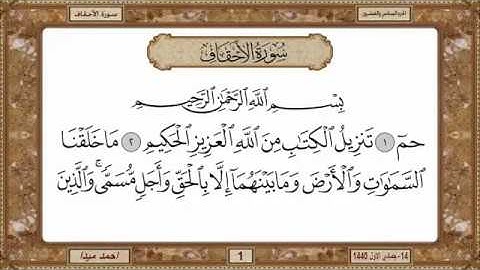 سورة الأحقاف
الجزء السادس والعشرين
سُورَةُ الأَحْقَافِ
بِسْمِ اللَّهِ الرَّحْمَٰنِ الرَّحِيمِ
حمٓ ١ تَنزِيلُ الْكِتَابِ مِنَ اللَّهِ الْعَزِيزِ الْحَكِيمِ ٢ مَا خَلَقْنَا
السَّمَاوَاتِ وَالْأَرْضَ وَمَا بَيْنَهُمَآ إِلَّا بِالْحَقِّ وَأَجَلٍ مُّسَمًّى ۚ وَالَّذِينَ
14- جمادى الاول 1440
1